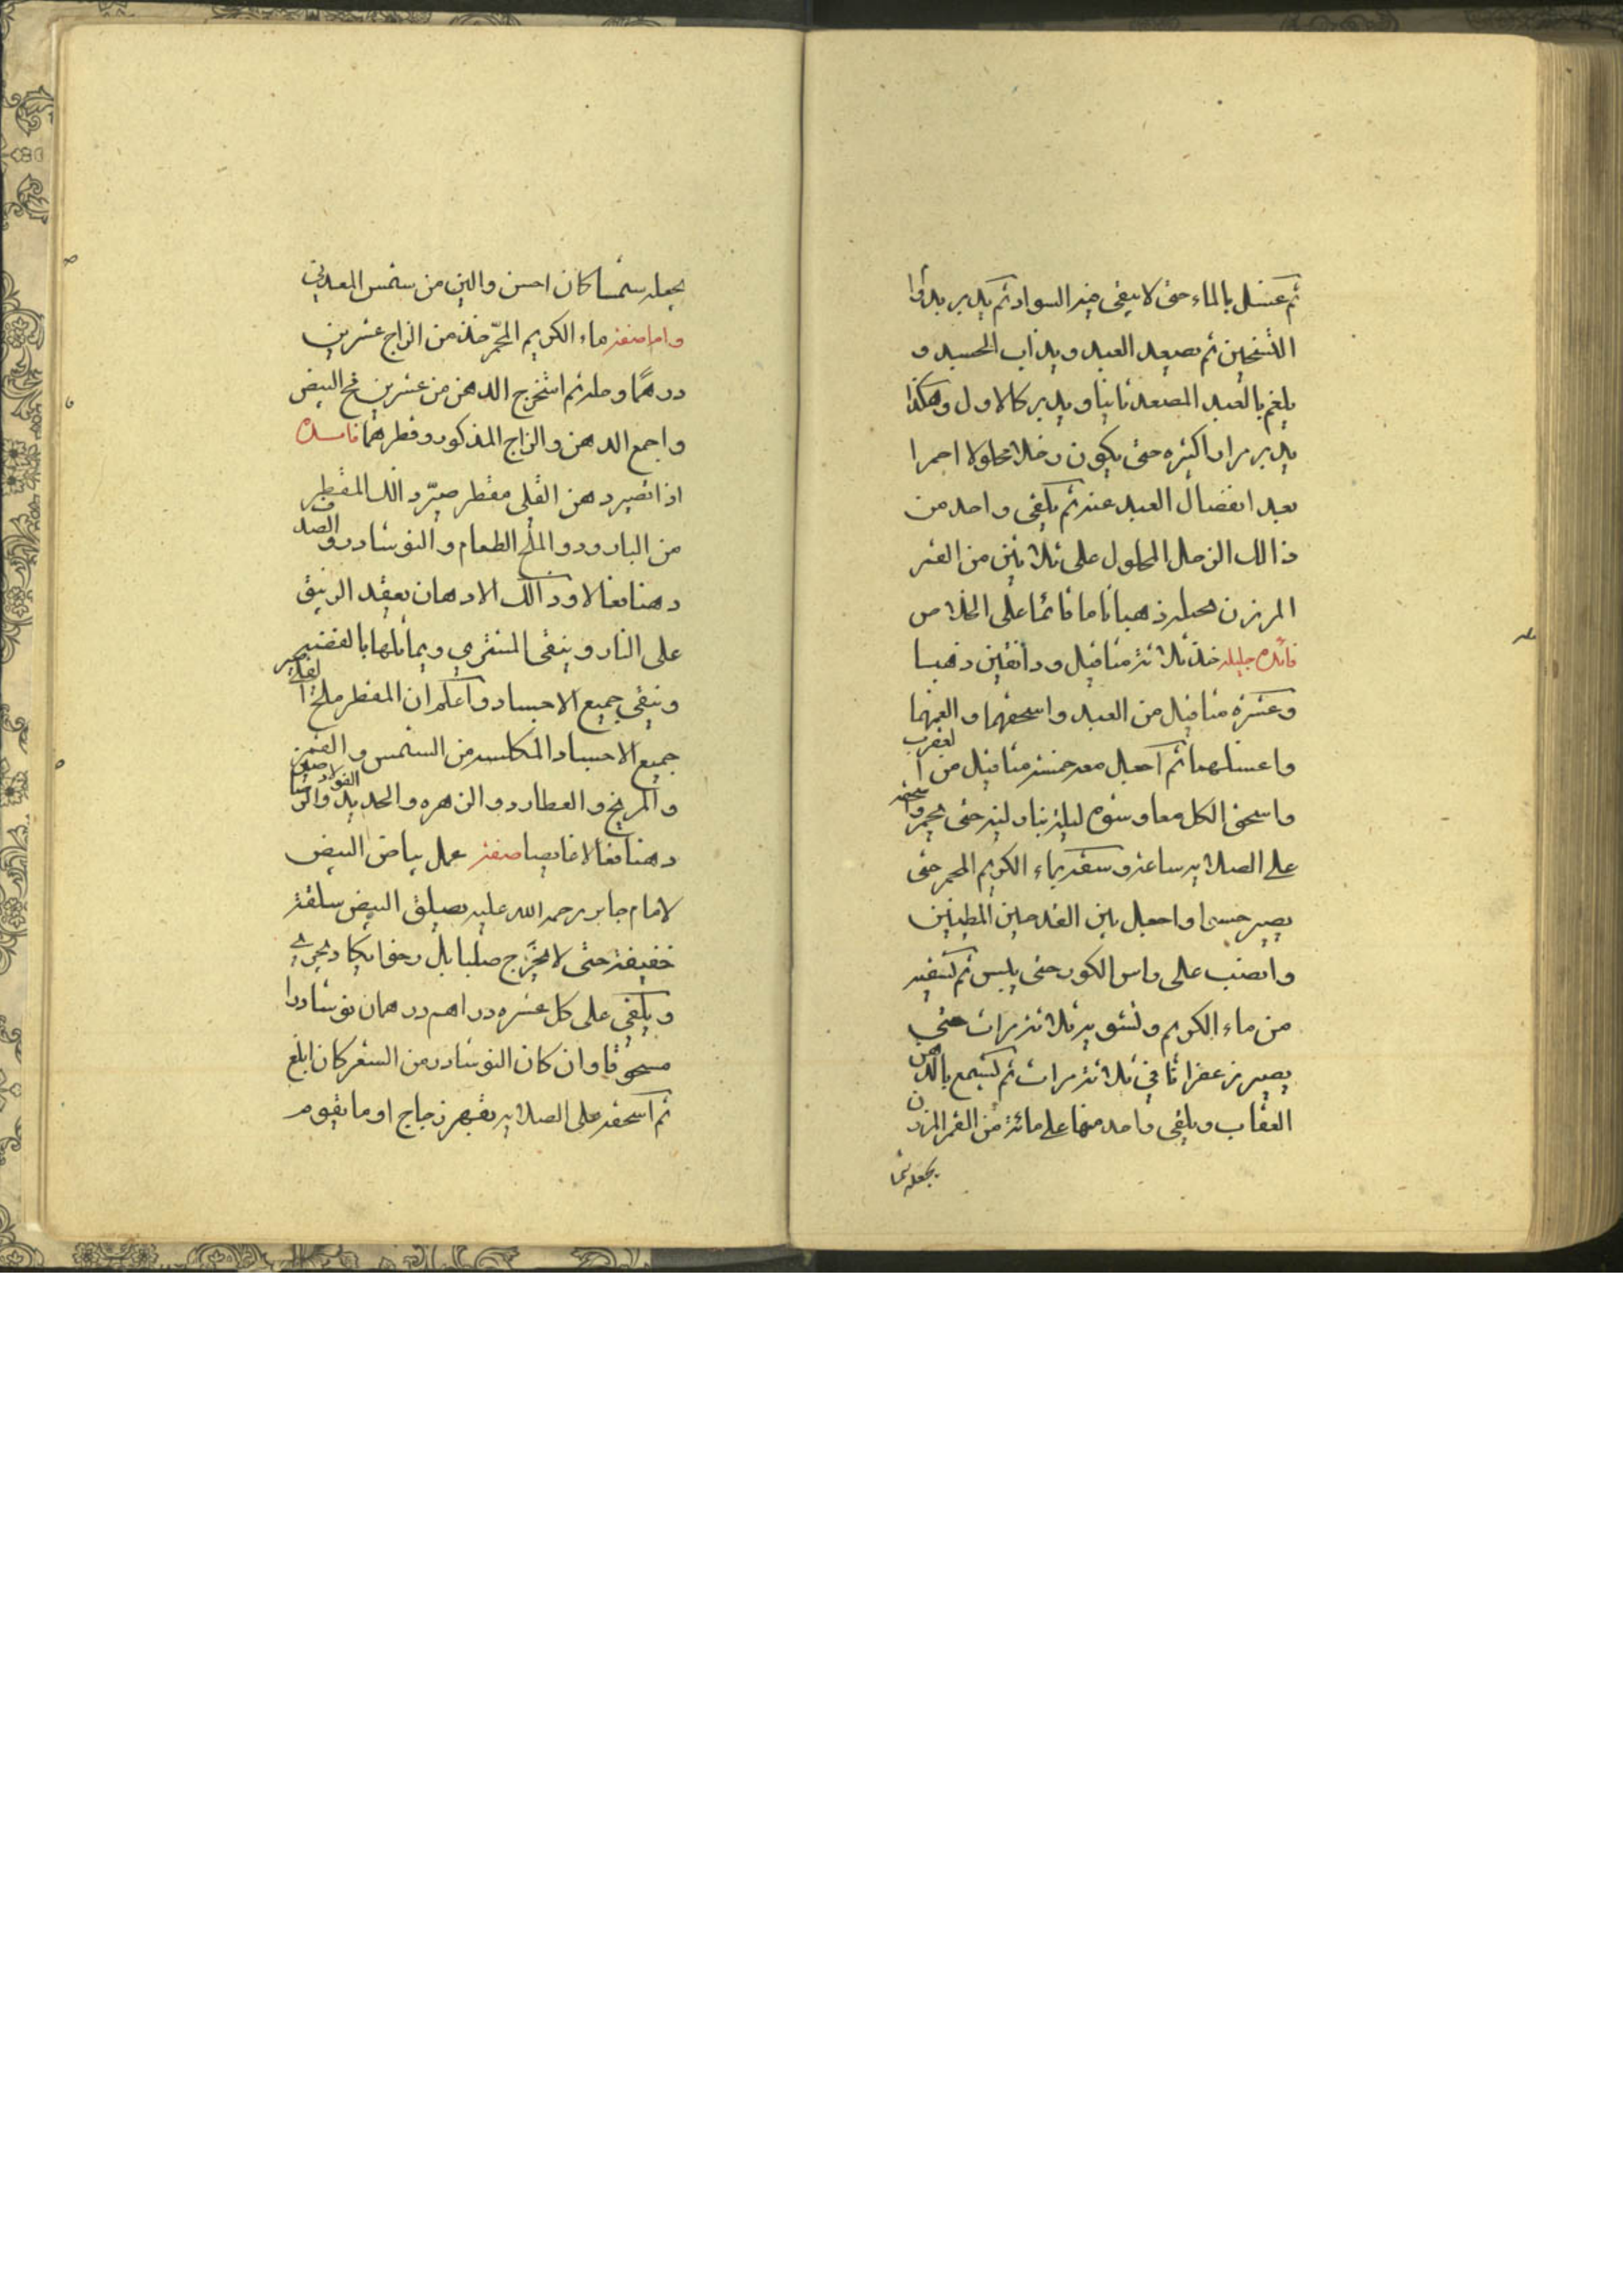 ثم غسل بالماء حتى لا يبقى فيه السواد ثم يدبر بدق ا
التسخين ثم تصعد العبد ويذاب الجسد و
يلغم بالعبد المصعد ثانيا ويدبر كالاول وهكذا
يدبر مرارا كثيره حتى يكون زحلا محلولا احمرا
بعد انفصال العبد عنه ثم يلقى واحد من
ذالك الزحل المحلول على ثلاثين من القمر
المرزن يجعله ذهبا تاما قائما على الخلاص
فائده جليله خذ ثلاثة مثاقيل ودانقين ذهبا
وعشرة مثاقيل من العبد واسحقهما والغمهما
واغسلهما ثم اجعل معه خمسة مثاقيل من العقرب
واسحق الكل معا وشوه ليلة بنار لينه حتى يحمر واسحقه
على الصلايه ساعة وسقه بماء الكريم المحمر حتى
يصير حسوا واجعل بين القدحين المطينين
وانصب على راس الكور حتى يبس ثم تسقيه
من ماء الكريم وتشويه ثلاثة مرات حتى
يصير زعفرانا في ثلاثة مرات ثم تشمع بالدهن
العقاب ويلقى واحد منها على مائة من القمر المرزن
يجعله شمسا
يجعله شمسا كان احسن والين من شمس المعدني
واما صفة ماء الكريم المحمّر خذ من الزاج عشرين
درهمًا وحله ثم استخرج الدهن من عشرين مح البيض
واجمع الدهن والزاج المذكور وقطرهما فائده
اذا تصير دهن القلى مقطر صيّر ذالك المقطر
من البارود والملح الطعام والنوشادر والصدف
دهنا فعالا وذالك الادهان يعقد الزيبق
على النار وينقى المشترى ويماثلها بالفضيه
وينقي جميع الاجساد واعلم ان المقطر ملح القلي يصير
جميع الاجساد المكلسه من الشمس والقمر
والمريخ والعطارد والزهره والحديد والفولاد
دهنا فعالا غايصا صفة عمل بياض البيض
لامام جابر رحمه الله عليه يصلق البيض سلقة
خفيفة حتى لا يخرج صلبا بل رخوا يكاد يجرى
ويلقى على كل عشره دراهم درهمان نوشادرا
مسحوقا وان كان النوشادر من الشعر كان ابلغ
ثم اسحقه على الصلايه بفهر زجاج او ما يقوم